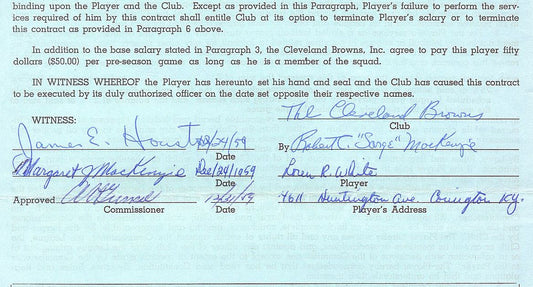 binding upon the Player and the Club. Except as provided in this Paragraph, Player's failure to perform the serv-
ices required of him by this contract shall entitle Club at its option to terminate Player's salary or to terminate
this contract as provided in Paragraph 6 above.
In addition to the base salary stated in Paragraph 3, the Cleveland Browns, Inc. agree to pay this player fifty
dollars ($50.00) per pre-season game as long as he is a member of the squad.
IN WITNESS WHEREOF the Player has hereunto set his hand and seal and the Club has caused this contract
to be executed by its duly authorized officer on the date set opposite their respective names.
WITNESS:
The Cleveland Browns
Club
James E. Houst 12/24/59
Date
By Robert C. "Sarge" MacKenzie
Margaret J MacKenzie Dec/24/1959
Date
Loren R. White
Player
Approved
Commissioner
Date
4611 Huntington Ave. Covington KY.
Player's Address